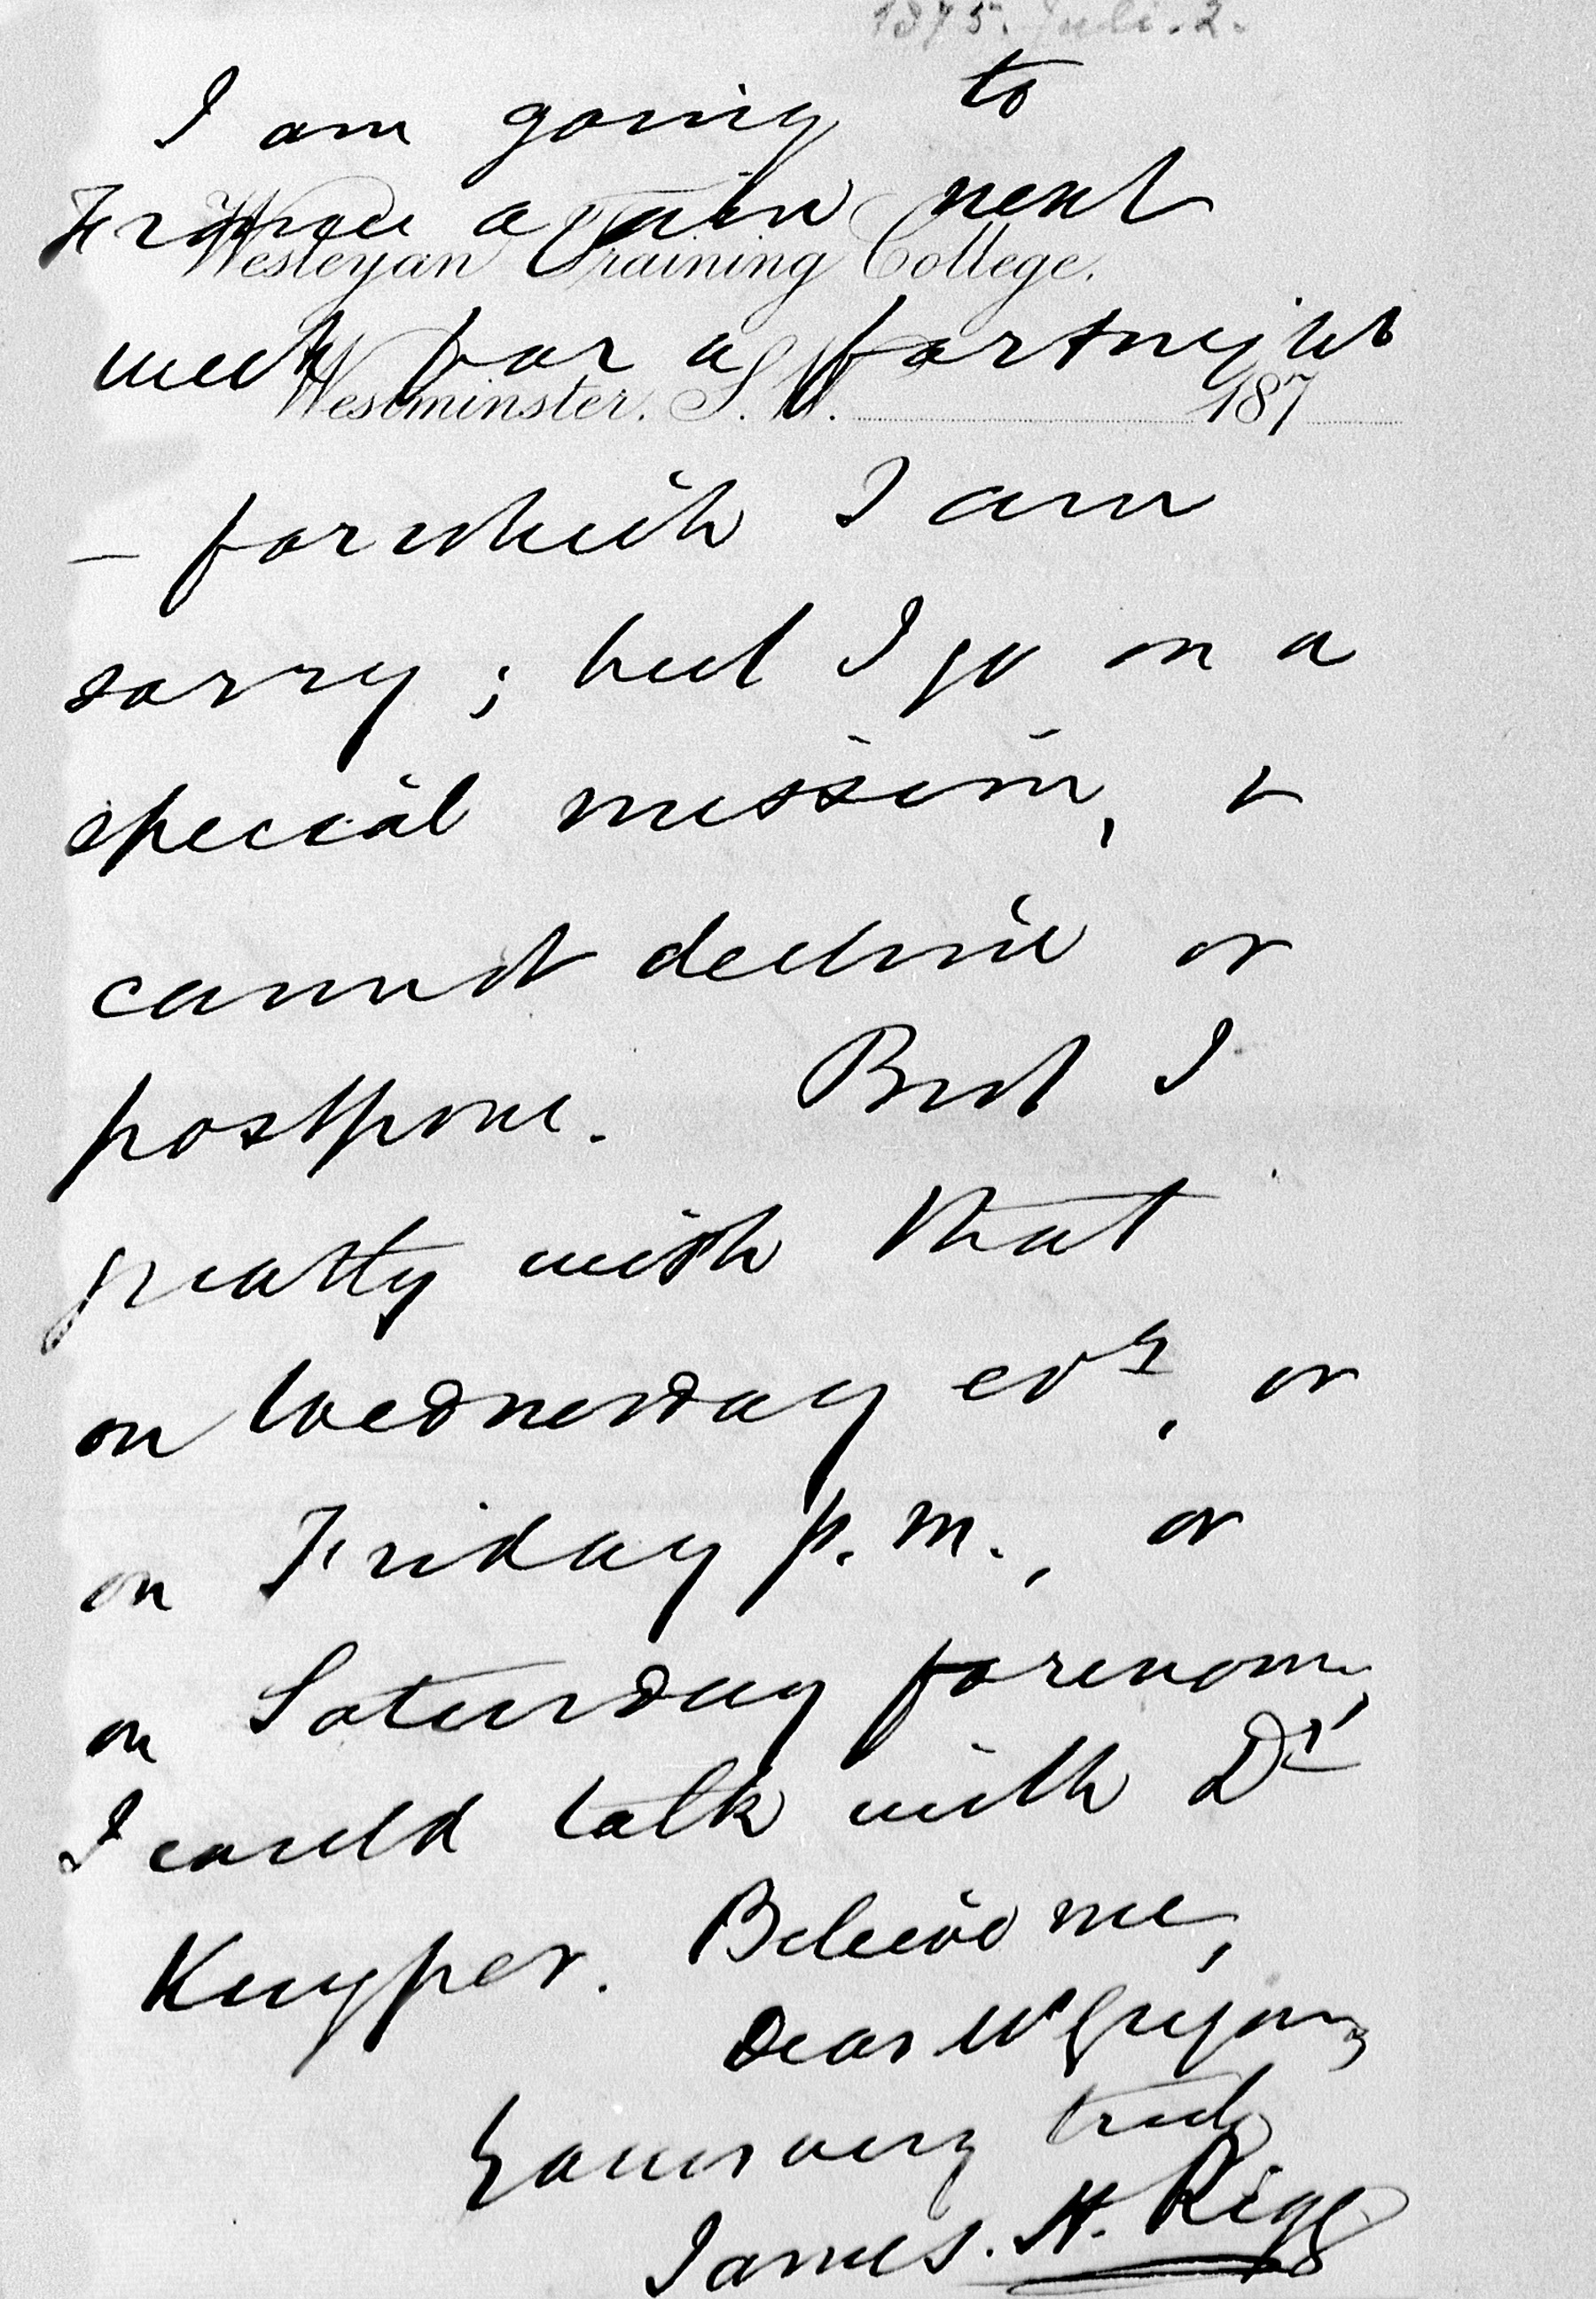 1875. Juli. 2.
I am going to
France again next
Wesleyan Training College.
week for a fortnight
Westminster. S. W. 187
— for which I am
sorry; but I go on a
special mission, &
cannot decline or
postpone. But I
greatly wish that
on Wednesday evg, or
on Friday p.m., or
on Saturday forenoon,
I could talk with Dr
Kuyper. Believe me,
Dear McGregor,
Yours very truly
James. H. Rigg